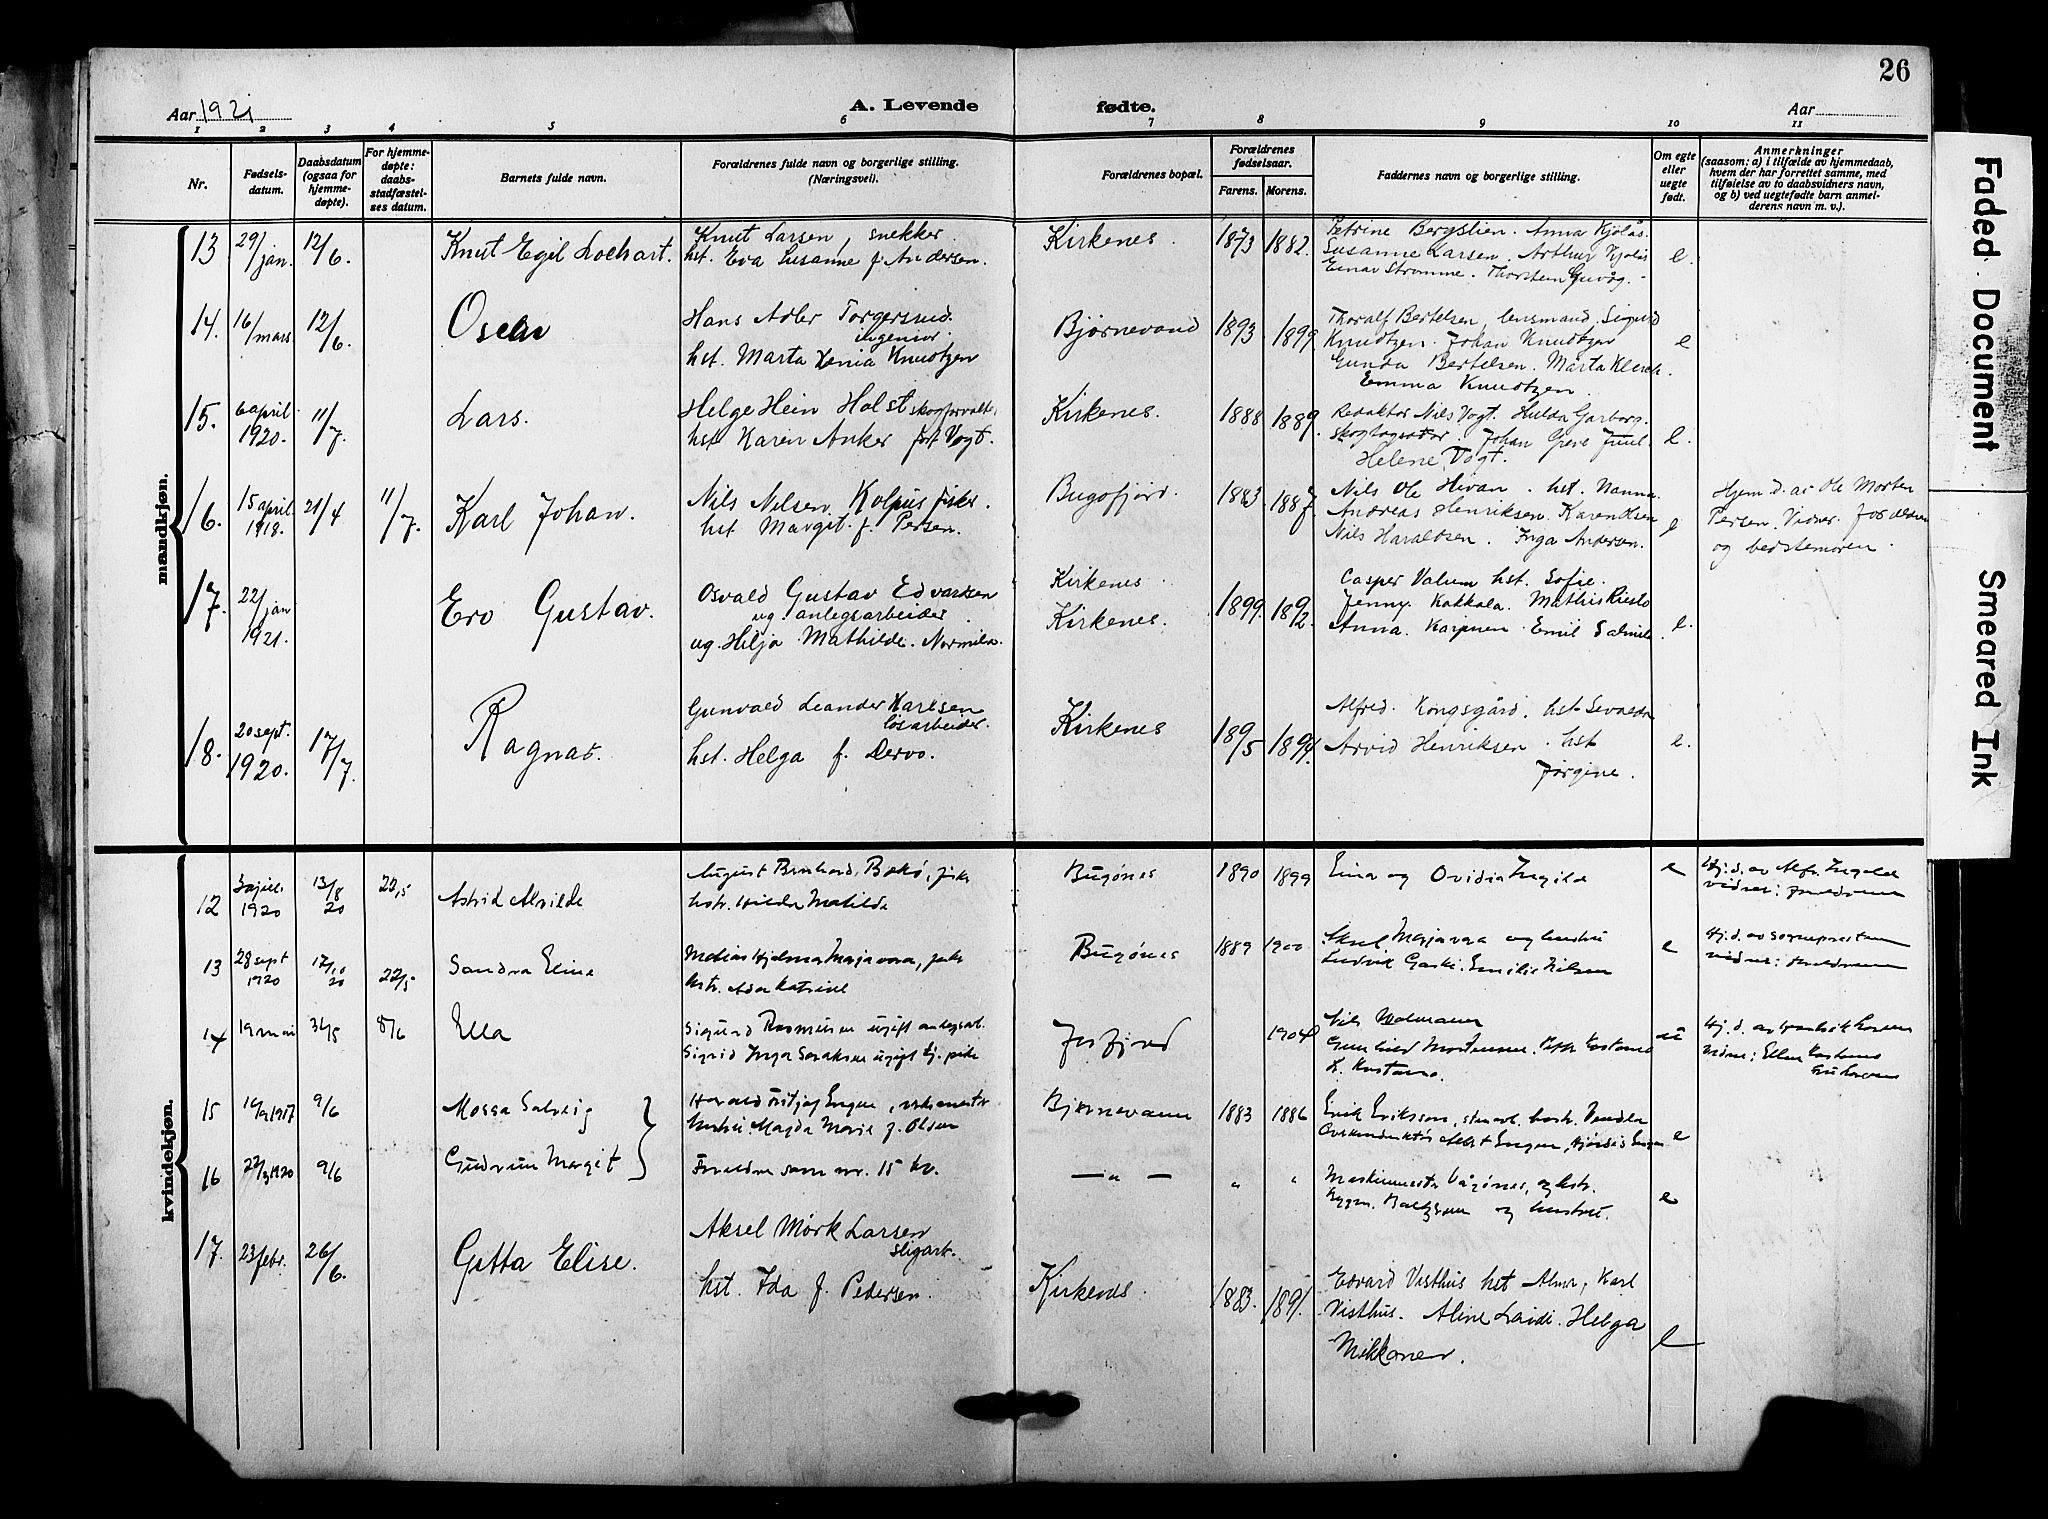 26
Aar 1921
A. Levende fødte.
Aar
1 2 3 4 5 6 7 8 9 10 11
Nr.
Fødsels-
datum.
Daabsdatum
(ogsaa for
hjemme-
døpte).
For hjemme-
døpte:
daabs-
stadfæstel-
ses datum.
Barnets fulde navn.
Forældrenes fulde navn og borgerlige stilling.
(Næringsvei).
Forældrenes bopæl.
Forældrenes
fødselsaar.
Farens. Morens.
Faddernes navn og borgerlige stilling.
Om egte
eller
uegte
født.
Anmerkninger
(saasom: a) i tilfælde av hjemmedaab,
hvem der har forrettet samme, med
tilføielse av to daabsvidners navn,
og b) ved uegtefødte barn anmel-
derens navn m. v.).
mandkjøn.
13 29/jan. 12/6. Knut Egil Lochart.
Knut Larsen, snekker
hst. Eva Susanne f. Andersen.
Kirkenes. 1873 1882.
Petrine Bergslien. Anna Kjølås.
Susanne Larsen. Arthur Kjølås
Einar Strømme. Thorstein
e.
14. 16/mars 12/6. Oscar
Hans Adler Torgersrud.
ingeniør
hst. Marta Xenia Knudtzen
Bjørnevand 1893 1899
Thoralf Bertelsen, lensmand. Sigurd
Knudtzen. Johan Knudtzen
Gunda Bertelsen. Marta Klerck.
Emma Knudtzen.
e
15. 6 april 1920. 11/7. Lars.
Helge Hein Holst skogforvalter
hst Karen Anker født Vogt.
Kirkenes. 1888 1889.
Redaktør Nils Vogt. Hulda Garborg.
Johan Grene Juul
Helene Vogt.
e.
16. 15 april 1918. 21/4 11/7. Karl Johan.
Nils Nilsen Kolpus fisker.
hst Margit f. Persen.
Bugøfjord. 1883 1887
Nils Ole Hivan. hst. Nanna.
Andreas Henriksen. Karen Olsen
Nils Haraldsen. Inga Andersen.
e
Hjem d. av Ole Morten
Persen. Vidner. foreldrene
og bedstemoren.
17. 22/jan 1921. Ero Gustav.
Osvald Gustav Edvardsen
ug anlegsarbeider
ug. Hilja Mathilde. Normila.
Kirkenes
Kirkenes. 1899. 1892.
Casper Valum hst. Sofie.
Jenny. Kakkala. Mathis Riesto
Anna. Karpinen. Emil Salmila.
e.
18. 20 sept. 1920. 17/7. Ragnar.
Gunvald Leander Karlsen
løsarbeider.
hst. Helga f. Dervo.
Kirkenes 1895 1894.
Alfred. Kongsgård. hst Sevalda
Arvid Henriksen. hst
Jørgine.
e.
kvindekjøn.
12 1920 13/8 20 22/5 Astrid Alvilde
August Bernhard Bækø, fisker
hstr. Hilda Matilde
Bugønes 1890 1899
Eina og Ovidia Ingilæ
e
Hj. d. av Alfr. Ingelæ
vidner: foreldrene
13 28 sept 1920 17/10 20 22/5 Sandra Elina
Matias Hjalmar Marjavara, fisker
hstr. Ada Katrine
Bugønes 1889 1900
Aksel Marjavara og hustru
Ludvik Gaski. Emilie Nilsen
e
Hj. d. av sogneprestenn
vidner: foreldrene
14 19 mai 31/5 8/6 Ella
Sigurd Rasmussen ugift anlegsarb.
Sigrid Inga Isaksen ugift tj. pike
Jarfjord 1904
Nils
Gunhild Mortensen.
15 14/9 1917 9/6 Mossa Solveig
Harald Fritjof Engen,
hustru. Magda Marie f. Olsen
Bjørnevann 1883 1886
Erik Eriksson, hustr. Vendla
e
16 22/3 1920 9/6 Gudrun Margit
Foreldre som nr. 15 kv.
— " — " "
Maskinmester Vågønes, og hstr.
Bygm. og hustru.
e
17. 23 febr. 26/6. Gitta Elise.
Aksel Mørk Larsen
sligarb.
hst. Ida f. Pedersen.
Kirkenes. 1883. 1891.
Edvard Visthus hst Alma, Karl
Visthus. Aline Laidi. Helga
Mikkonen.
e
Faded Document
Smeared Ink